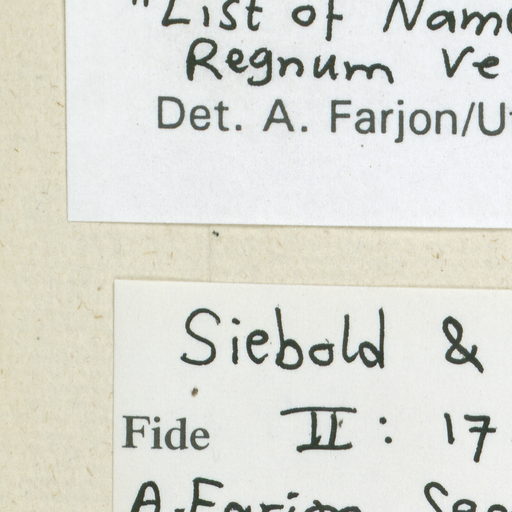 "List of Name
Regnum Ve
Det. A. Farjon/U
Siebold &
Fide II: 17
A. Farjon Sep